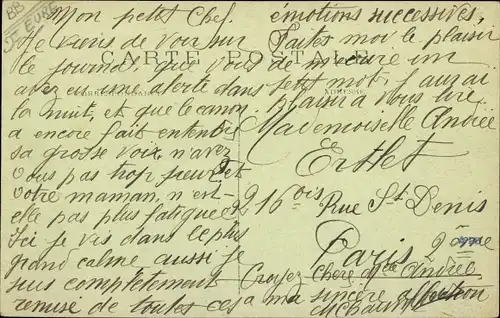 BB
EURE
Mon petit Chef.
Je viens de voir sur
le journal, que vous
avez eu une alerte dans
la nuit, et que le canon
a encore fait entendre
sa grosse voix, n'avez
vous pas trop peur et
votre maman, n'est-
elle pas plus fatiguée
Ici je vis dans le plus
grand calme aussi je
suis complètement
remise de toutes ces
émotions successives,
Faites moi le plaisir
de m'écrire un
petit mot, j'aurai
plaisir à vous lire.
CARTE POSTALE
ADRESSE
Mademoiselle Andrée
Ertlet
216 bis Rue St Denis
Paris 2ème
Croyez chère Mlle Andrée
a ma sincère affection